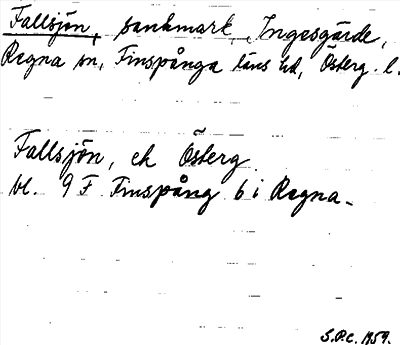 Fallsjön, sankmark, Ingesgärde,
Regna sn, Finspånga läns hd, Österg. l.
Fallsjön, ek Österg.
bl. 9 F Finspång 6 i Regna.
S.P.C. 1959.